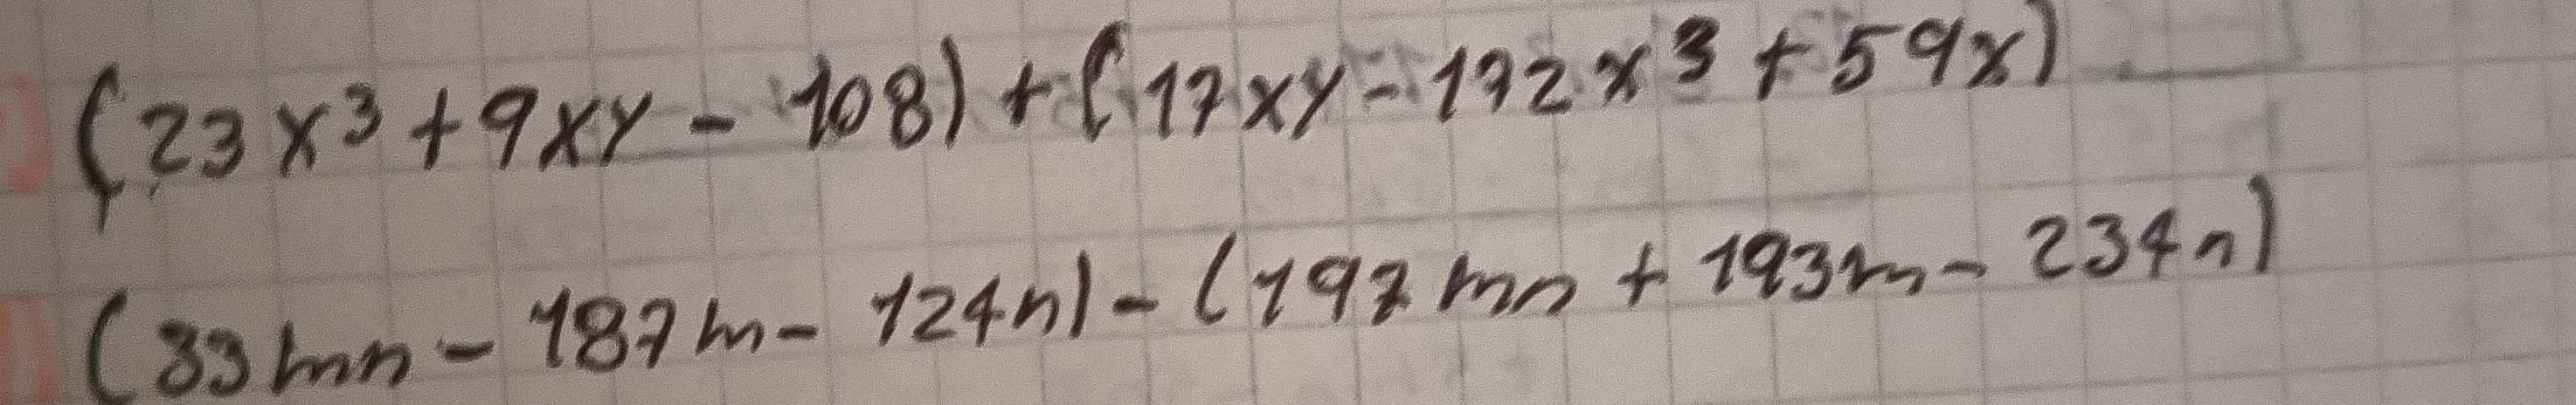 (23x³+9xy-108)+(17xy-172x³+59x)
(33mn-187m-124n)-(197mn+193m-234n)